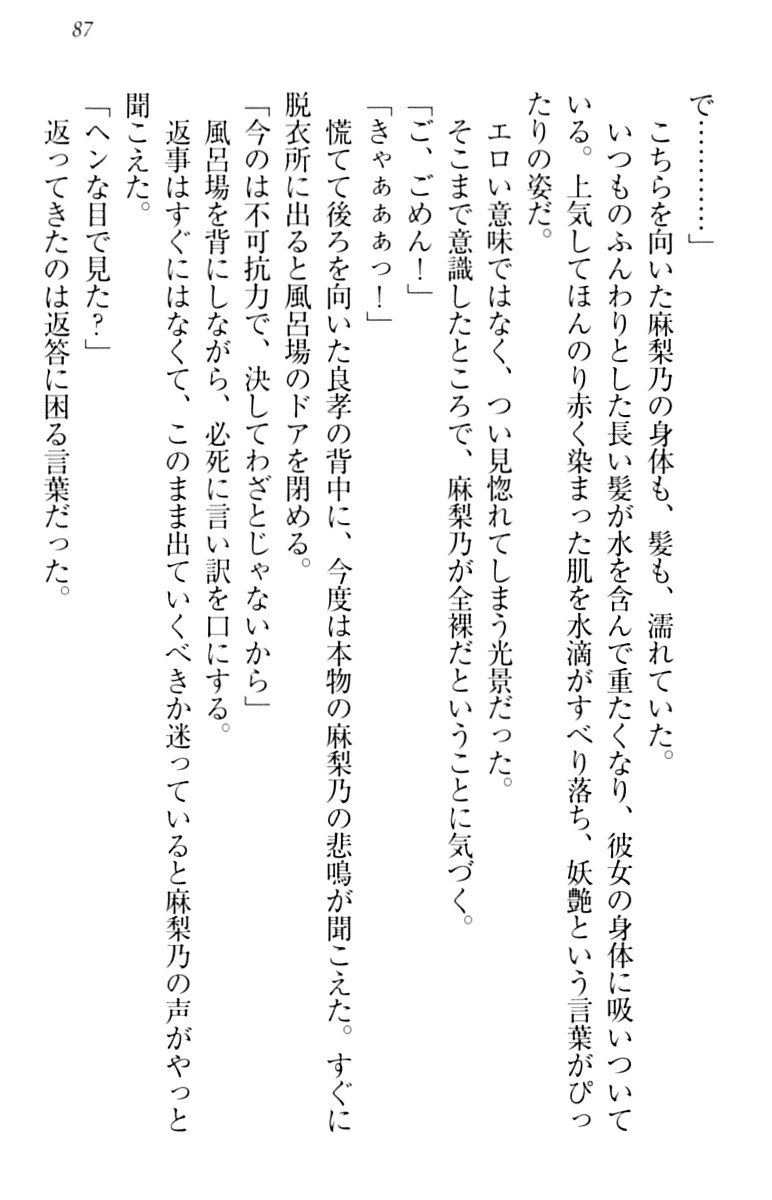 87
で…………」
こちらを向いた麻梨乃の身体も、髪も、濡れていた。
いつものふんわりとした長い髪が水を含んで重たくなり、彼女の身体に吸いついて
いる。上気してほんのり赤く染まった肌を水滴がすべり落ち、妖艶という言葉がぴっ
たりの姿だ。
エロい意味ではなく、つい見惚れてしまう光景だった。
そこまで意識したところで、麻梨乃が全裸だということに気づく。
「ご、ごめん！」
「きゃぁぁぁっ！」
慌てて後ろを向いた良孝の背中に、今度は本物の麻梨乃の悲鳴が聞こえた。すぐに
脱衣所に出ると風呂場のドアを閉める。
「今のは不可抗力で、決してわざとじゃないから」
風呂場を背にしながら、必死に言い訳を口にする。
返事はすぐにはなくて、このまま出ていくべきか迷っていると麻梨乃の声がやっと
聞こえた。
「ヘンな目で見た？」
返ってきたのは返答に困る言葉だった。